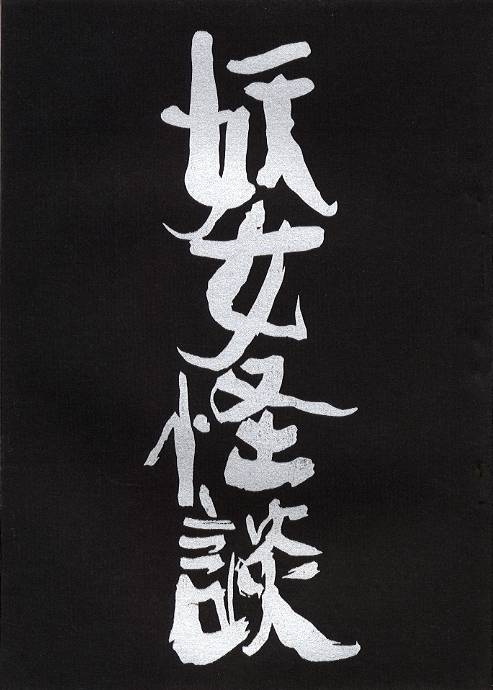 妖女怪談